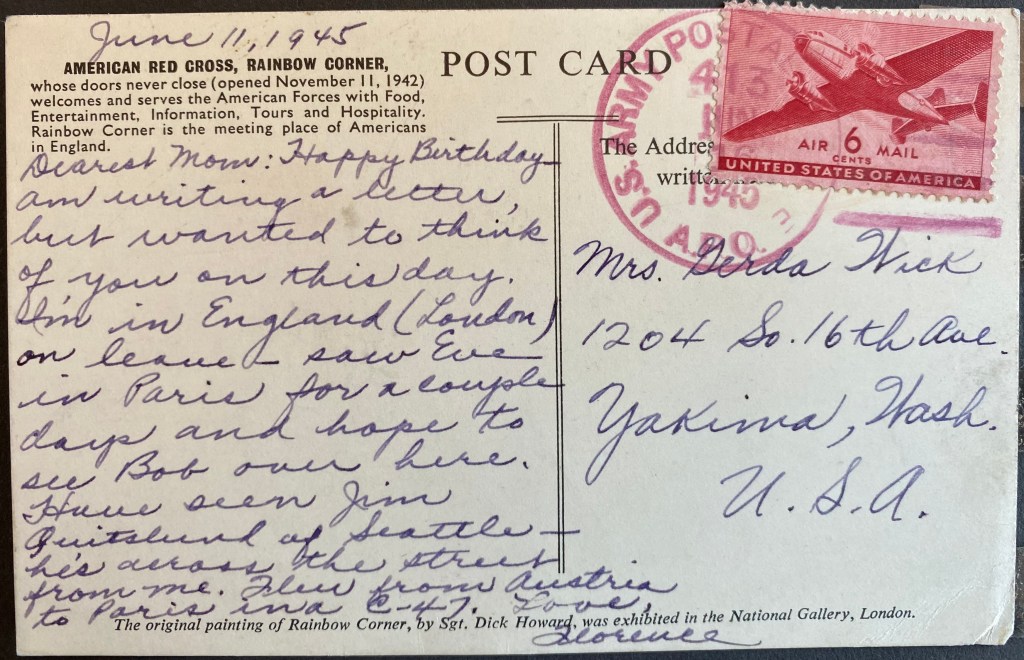 June 11, 1945
AMERICAN RED CROSS, RAINBOW CORNER,
whose doors never close (opened November 11, 1942)
welcomes and serves the American Forces with Food,
Entertainment, Information, Tours and Hospitality.
Rainbow Corner is the meeting place of Americans
in England.
Dearest Mom: Happy Birthday—
am writing a letter,
but wanted to think
of you on this day.
I'm in England (London)
on leave — saw Eve
in Paris for a couple
days and hope to
see Bob over here.
Have seen Jim
Quitslund of Seattle —
he's across the street
from me. Flew from Austria
to Paris in a C-47. Love,
Florence
The original painting of Rainbow Corner, by Sgt. Dick Howard, was exhibited in the National Gallery, London.
POST CARD
The Addres
writte
U.S. ARMY POSTAL
13
1945
A.P.O.
AIR 6 MAIL
CENTS
UNITED STATES OF AMERICA
Mrs. Gerda Wick
1204 So. 16th Ave.
Yakima, Wash.
U.S.A.